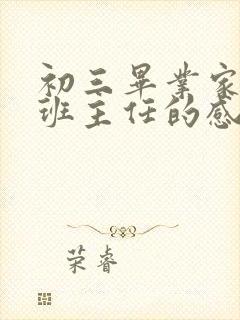 初三畢業家
班主任的感
荣睿